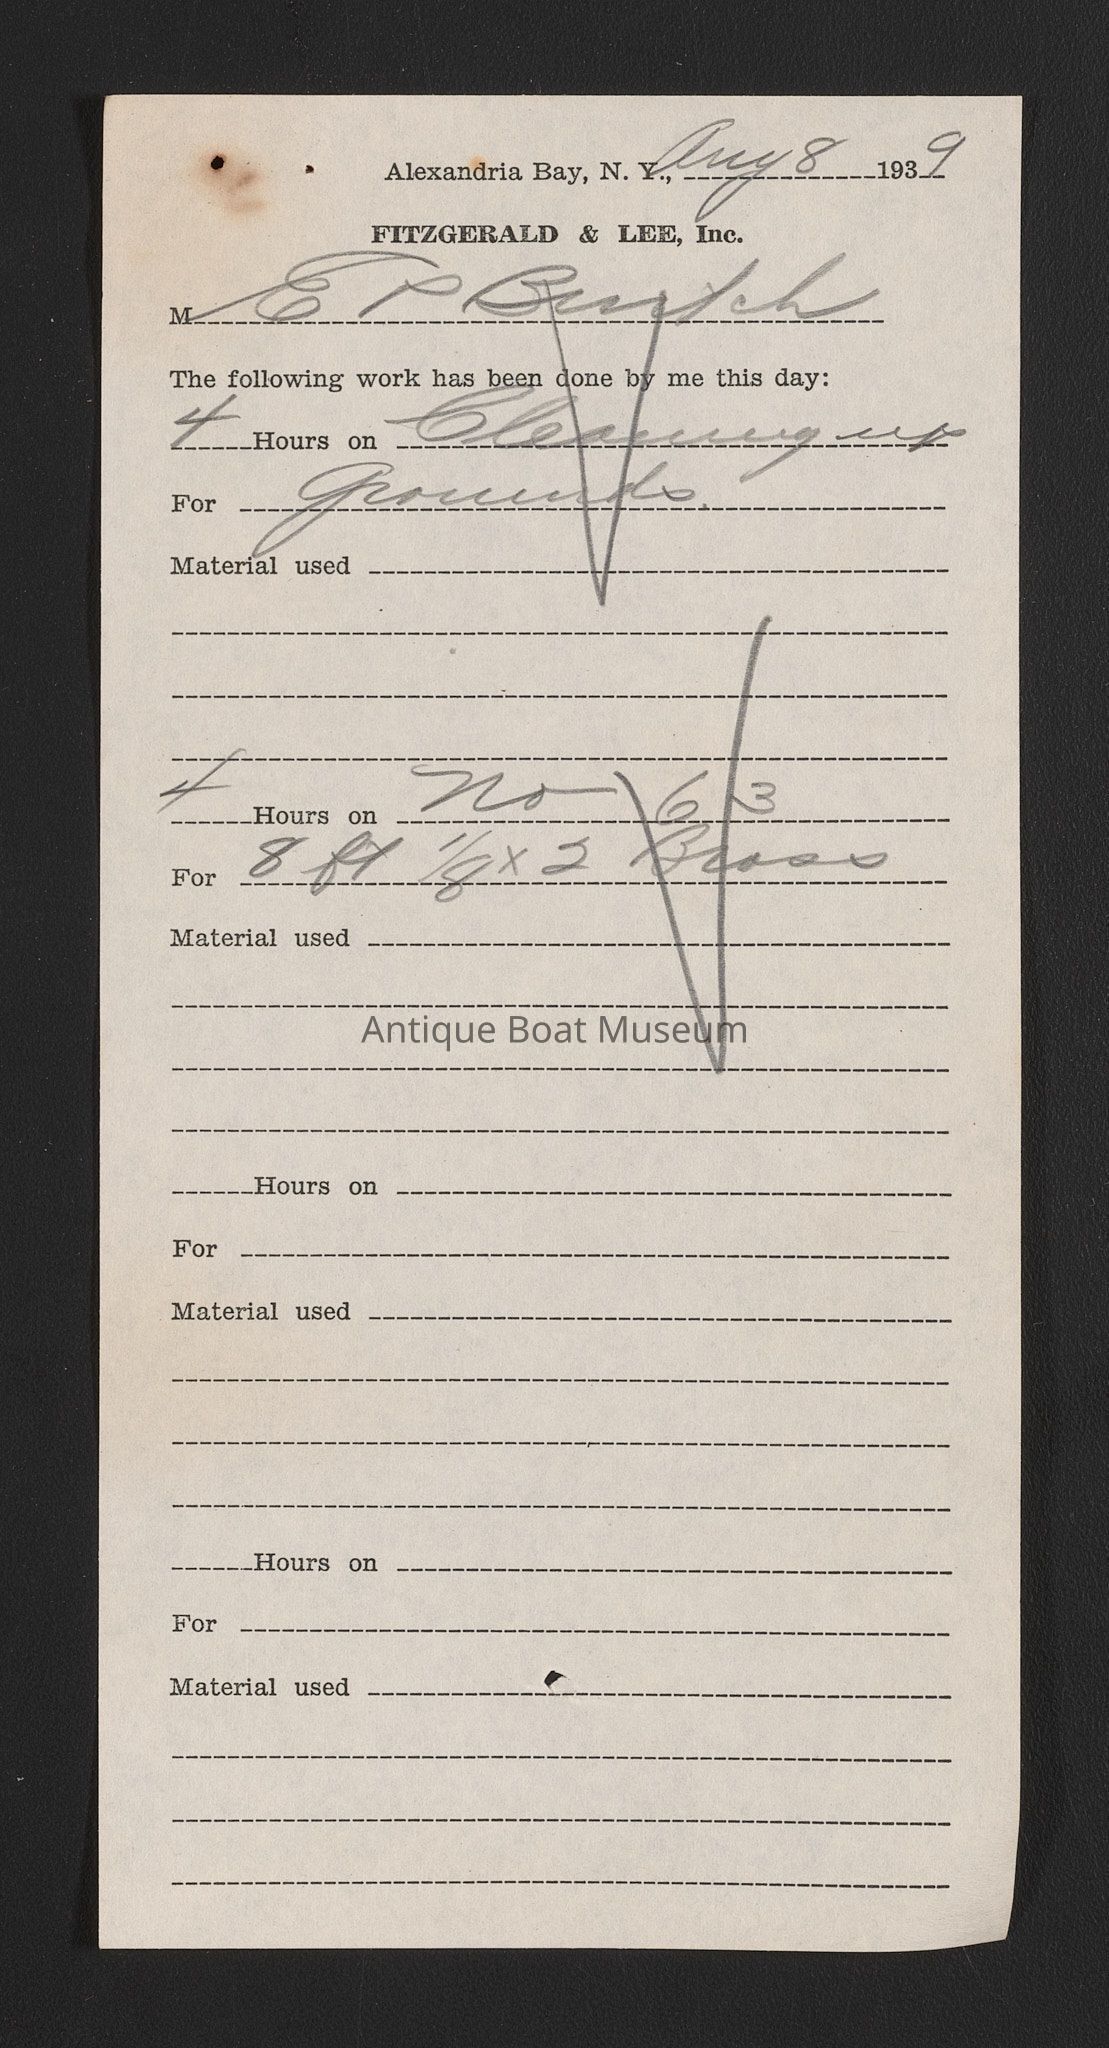 Alexandria Bay, N. Y., Aug 8 1939
FITZGERALD & LEE, Inc.
M E P
The following work has been done by me this day:
4 Hours on Cleaning up
For Grounds.
Material used
4 Hours on No 63
For 8 ft 1/8 x 2 Brass
Material used
Antique Boat Museum
Hours on
For
Material used
Hours on
For
Material used